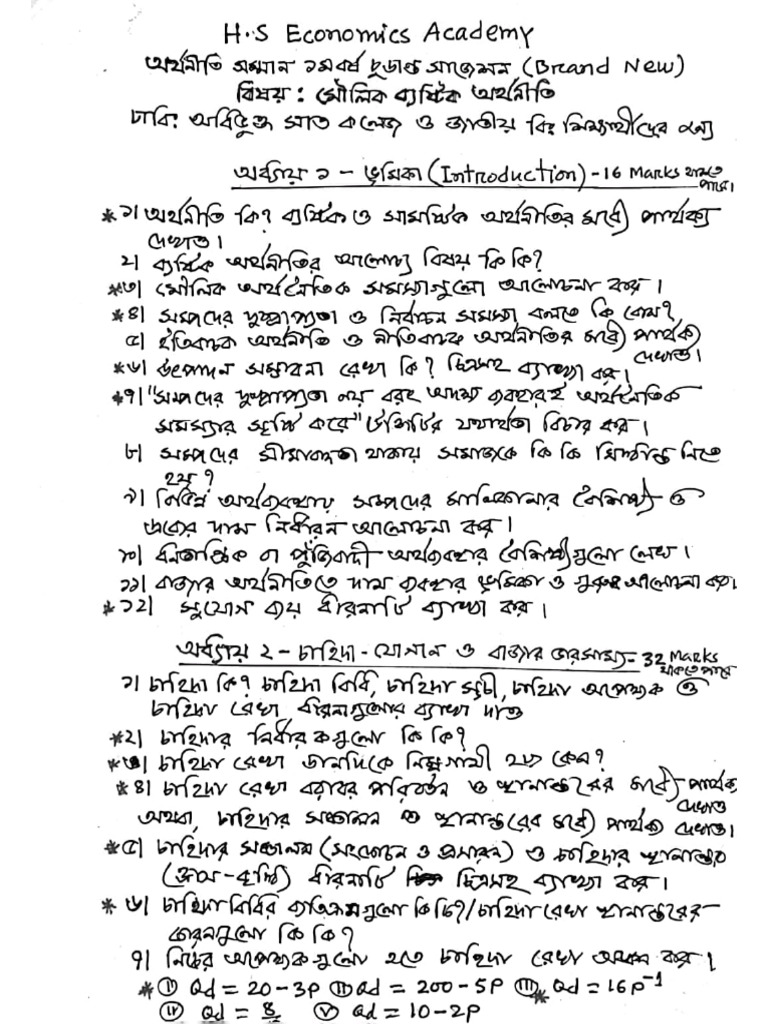 H.S Economics Academy
অর্থনীতি সম্মান ১ম বর্ষ চূড়ান্ত সাজেশন (Brand New)
বিষয় : মৌলিক ব্যষ্টিক অর্থনীতি
ঢাবি: অধিভুক্ত সাত কলেজ ও জাতীয় বি: শিক্ষার্থীদের জন্য
অধ্যায় ১ - ভূমিকা (Introduction) - 16 Marks থাকতে পারে।
*১। অর্থনীতি কি? ব্যষ্টিক ও সামষ্টিক অর্থনীতির মধ্যে পার্থক্য
দেখাও।
২। ব্যষ্টিক অর্থনীতির আলোচ্য বিষয় কি কি?
*৩। মৌলিক অর্থনৈতিক সমস্যাগুলো আলোচনা কর।
*৪। সম্পদের দুষ্প্রাপ্যতা ও নির্বাচন সমস্যা বলতে কি বোঝ?
৫। ইতিবাচক অর্থনীতি ও নীতিবাচক অর্থনীতির মধ্যে পার্থক্য দেখাও।
*৬। উৎপাদন সম্ভাবনা রেখা কি? চিত্রসহ ব্যাখ্যা কর।
*৭। "সম্পদের দুষ্প্রাপ্যতা নয় বরং অদক্ষ ব্যবহারই অর্থনৈতিক
সমস্যার সৃষ্টি করে" উক্তিটির যথার্থতা বিচার কর।
৮। সম্পদের সীমাবদ্ধতা থাকায় সমাজকে কি কি সিদ্ধান্ত নিতে
হয়?
৯। বিভিন্ন অর্থব্যবস্থায় সম্পদের মালিকানার বৈশিষ্ট্য ও
দ্রব্যের দাম নির্ধারন আলোচনা কর।
১০। ধনতান্ত্রিক বা পুঁজিবাদী অর্থব্যবস্থার বৈশিষ্ট্যগুলো লেখ।
১১। বাজার অর্থনীতিতে দাম ব্যবস্থার ভূমিকা ও গুরুত্ব আলোচনা কর।
*১২। সুযোগ ব্যয় ধারনাটি ব্যাখ্যা কর।
অধ্যায় ২ - চাহিদা - যোগান ও বাজার ভারসাম্য = 32 Marks থাকতে পারে
১। চাহিদা কি? চাহিদা বিধি, চাহিদা সূচী, চাহিদা অপেক্ষক ও
চাহিদা রেখা ধারনাগুলোর ব্যাখ্যা দাও
*২। চাহিদার নির্ধারকগুলো কি কি?
*৩। চাহিদা রেখা ডানদিকে নিম্নগামী হয় কেন?
*৪। চাহিদা রেখা বরাবর পরিবর্তন ও স্থানান্তরের মধ্যে পার্থক্য দেখাও
অথবা, চাহিদার সঞ্চালন ও স্থানান্তরের মধ্যে পার্থক্য দেখাও।
*৫। চাহিদার সঞ্চালন (সংকোচন ও প্রসারন) ও চাহিদার স্থানান্তর
(হ্রাস-বৃদ্ধি) ধারনাটি চিত্রসহ ব্যাখ্যা কর।
*৬। চাহিদাবিধির ব্যতিক্রমগুলো কি কি?/চাহিদা রেখা স্থানান্তরের
কারনগুলো কি কি?
৭। নিচের অপেক্ষকগুলো হতে চাহিদা রেখা অঙ্কন কর।
* (i) Qd = 20-3P (ii) Qd = 200-5P (iii)* Qd = 16P⁻¹
(iv) Qd = 8/ (v) Qd = 10-2P